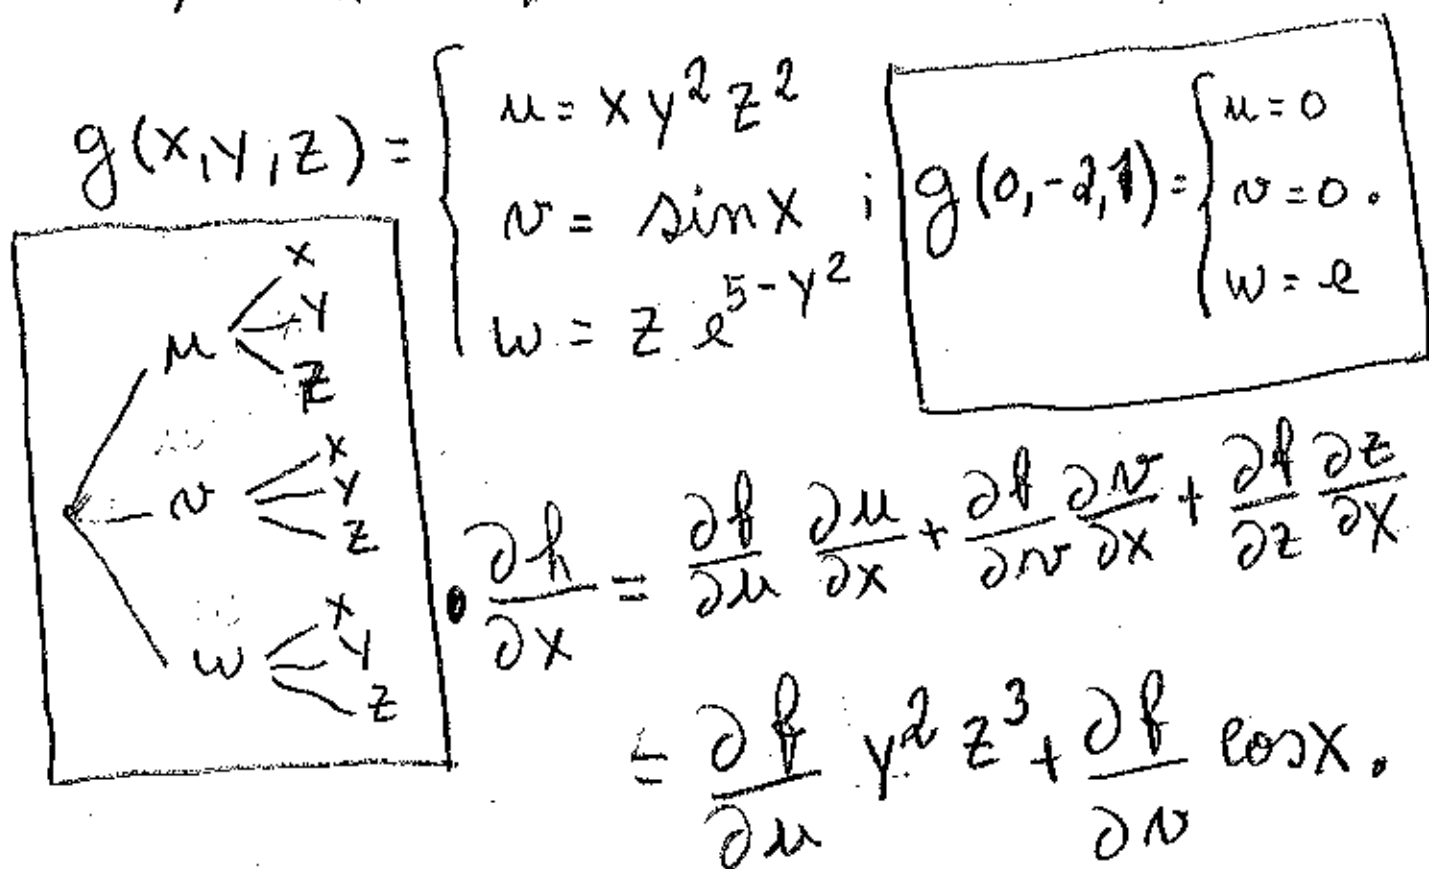 g(x,y,z) = { u = x y² z²
v = sin x ;
w = z e^{5-y²}
g(0,-2,1) = { u = 0
v = 0 .
w = e
u x y z
v x y z
w x y z
• ∂h/∂x = ∂f/∂u ∂u/∂x + ∂f/∂v ∂v/∂x + ∂f/∂z ∂z/∂x
= ∂f/∂u y² z³ + ∂f/∂v cos x .